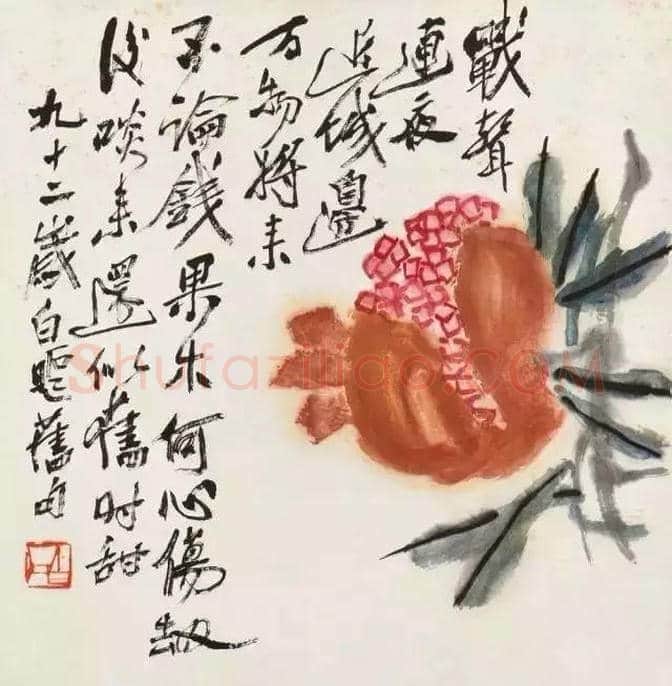 戰聲
連夜
近城邊
万物將来
不論錢果木何心傷劫
後啖来還似舊時甜
九十二歲白石舊句
Shufaziliao.COM